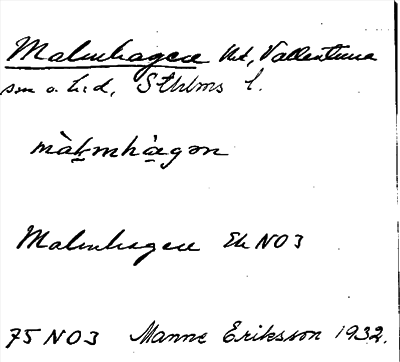 Malmhagen Ht, Vallentuna
sn o. h:d, Sthlms l.
màḻmhàgən
Malmhagen Ek NO3
75 NO3 Manne Eriksson 1932.